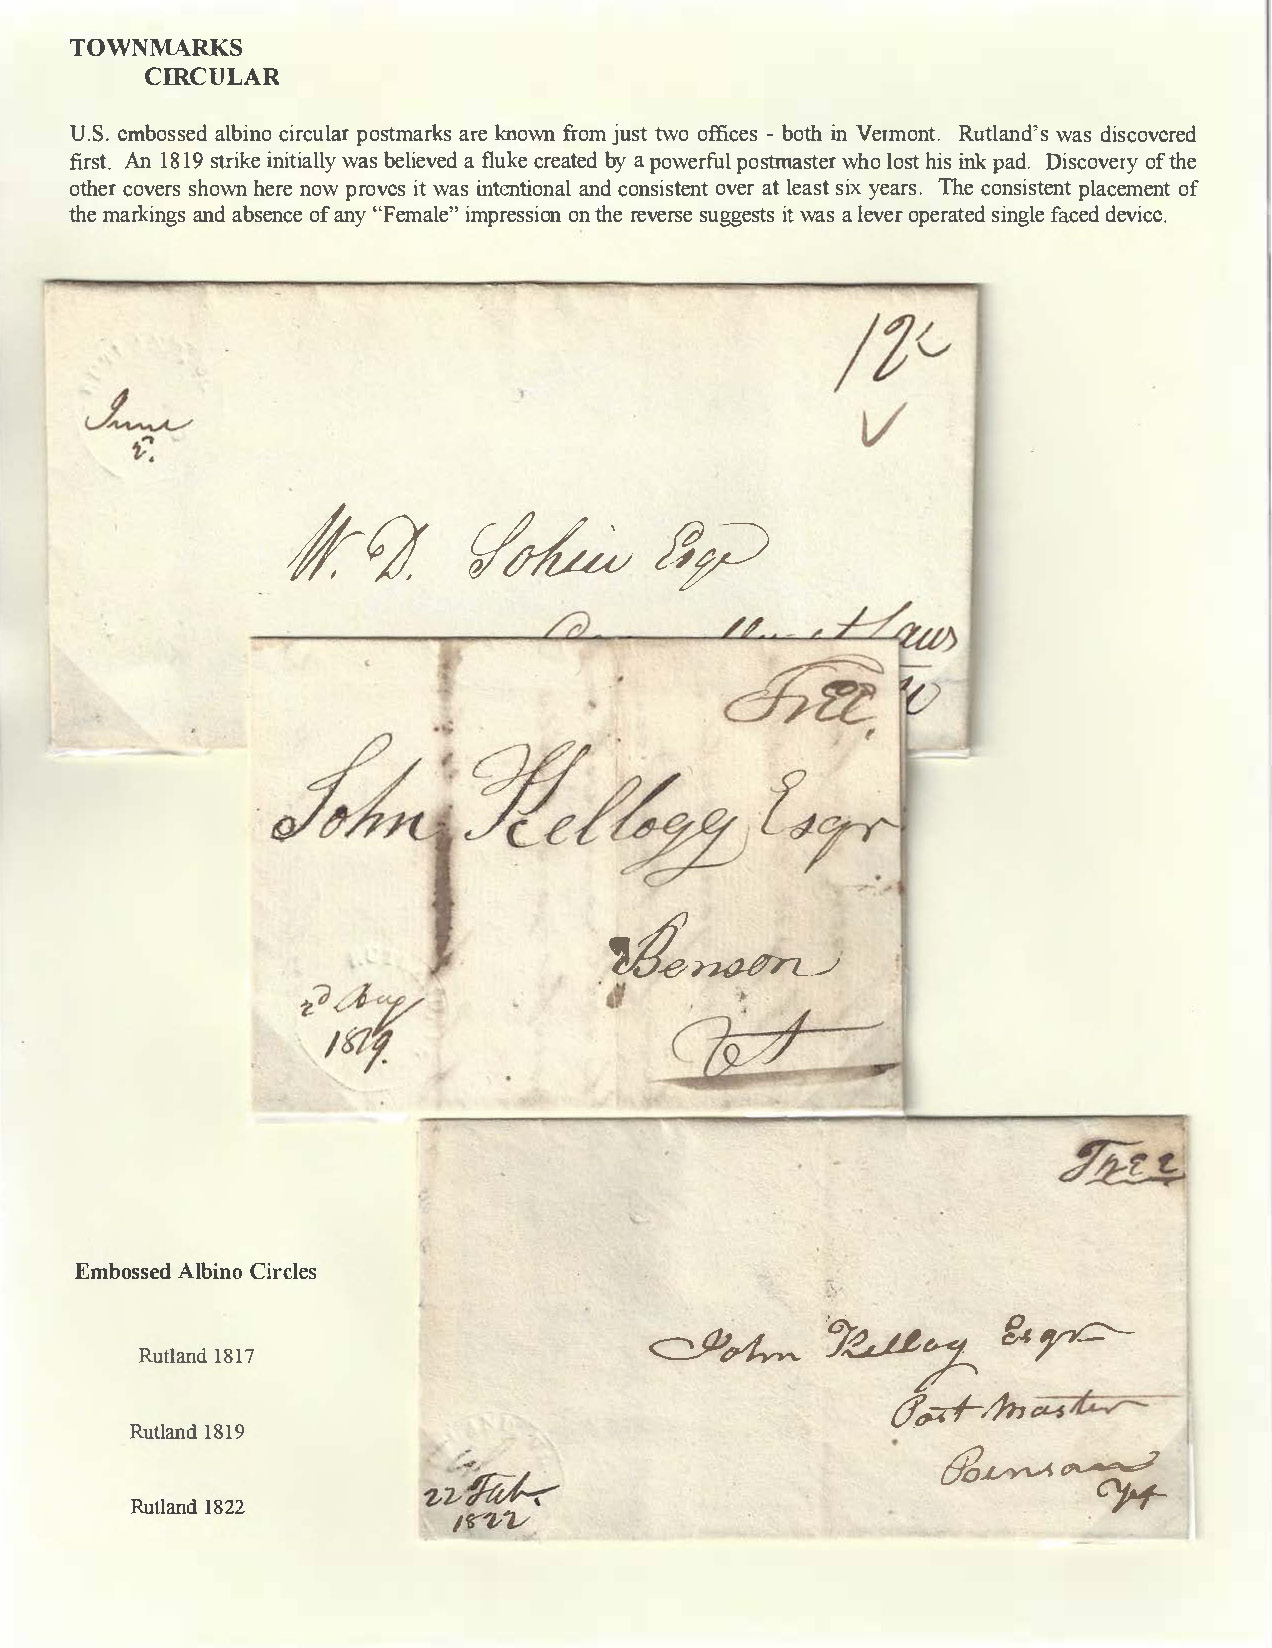 TOWNMARKS
CIRCULAR
U.S. embossed albino circular postmarks are known from just two offices - both in Vermont. Rutland's was discovered
first. An 1819 strike initially was believed a fluke created by a powerful postmaster who lost his ink pad. Discovery of the
other covers shown here now proves it was intentional and consistent over at least six years. The consistent placement of
the markings and absence of any “Female” impression on the reverse suggests it was a lever operated single faced device.
12
June
2.
W. D. Sohier Esqr
at Law
Free.
John Kellogg Esqr
Benson
Vt
2d Aug
1819.
Free
John Kellog Esqr
Post Master
Benson
Vt
22 Feb.
1822
Embossed Albino Circles
Rutland 1817
Rutland 1819
Rutland 1822